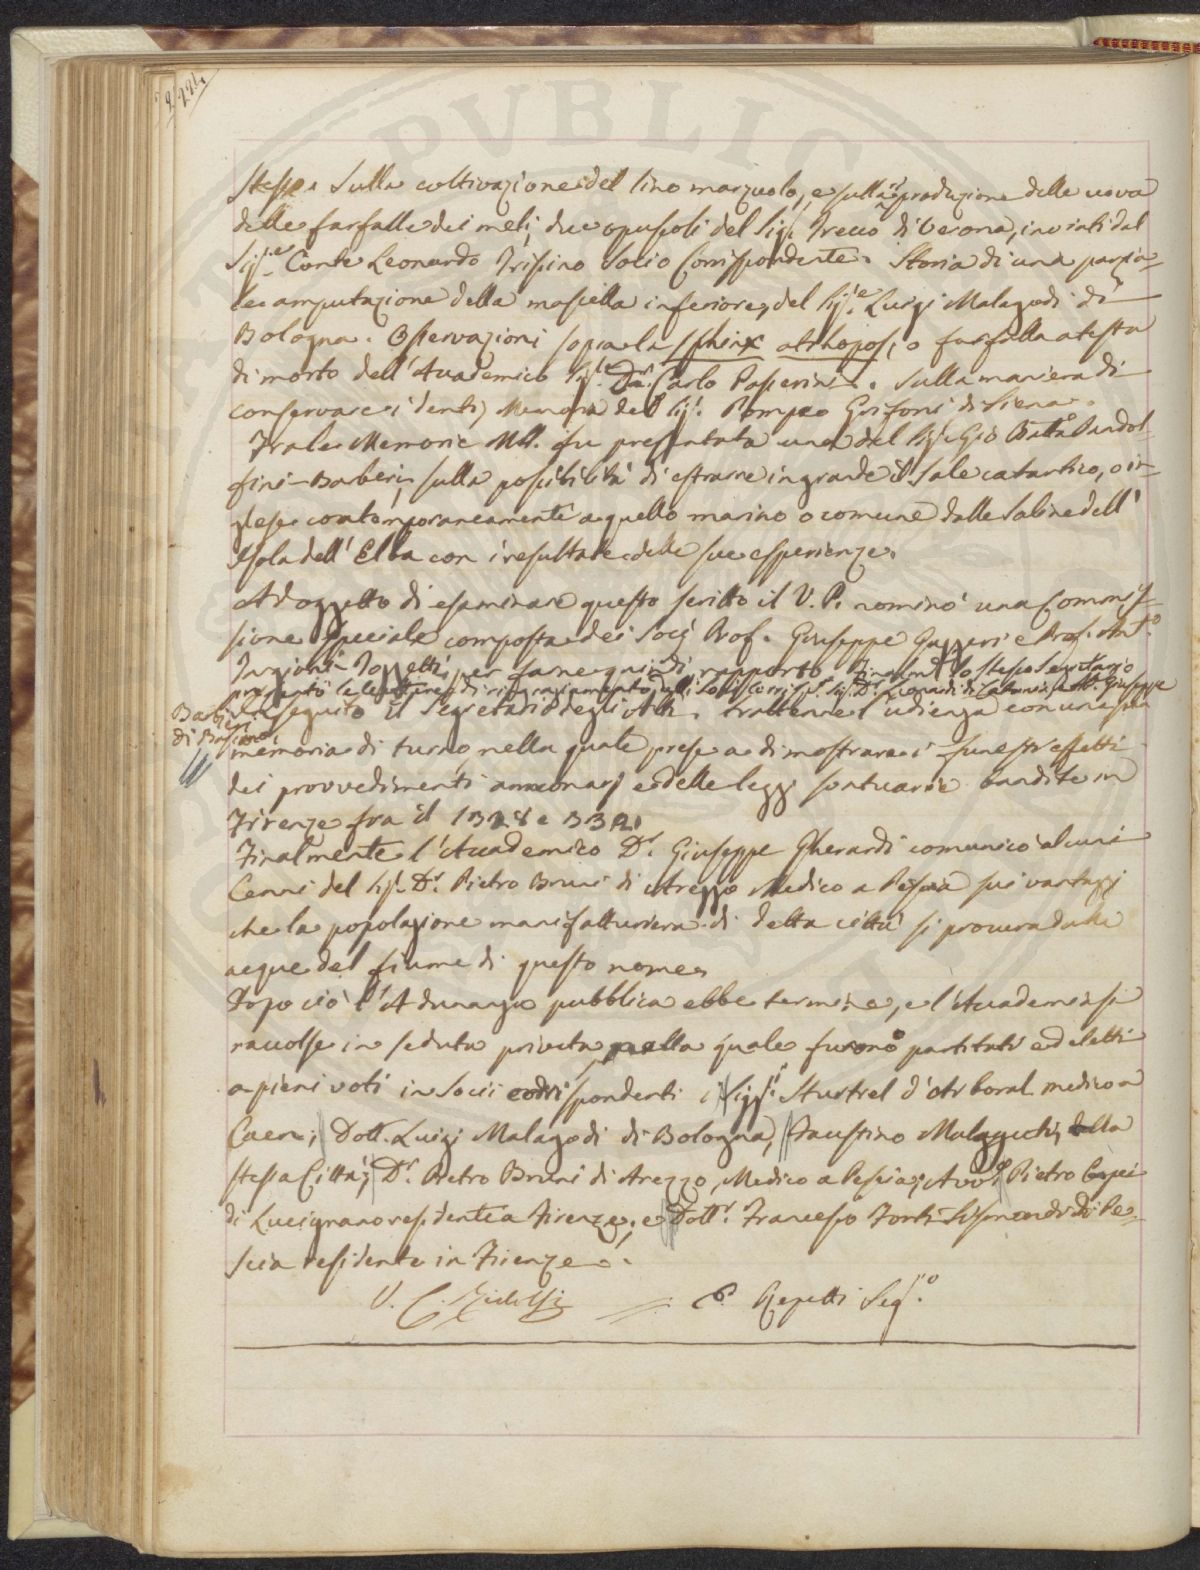 224
stesse. Sulla coltivazione del lino marzuolo, e sulla produzione delle uova
delle farfalle dei meli, due opuscoli del Sig. Trecco di Verona, inviati dal
Sig.re Conte Leonardo Trissino Socio Corrispondente. Storia di una parzia-
le amputazione della mascella inferiore, del Sig.re Luigi Malagodi di
Bologna. Osservazioni sopra la sphinx athropos, o farfalla a testa
di morto dell'Accademico Sig.re Dr. Carlo Passerini. Sulla maniera di
conservare i denti, Memoria del Sig. Pompeo Grifoni di Siena.
Tra le Memorie MSS. fu presentata una del Sig. Gio Batta Pandol-
fini-Barberi, sulla possibilità di estrarre in grande il Sale catartico, o in-
glese contemporaneamente a quello marino o comune dalle Saline dell'
Isola dell'Elba con i resultati delle sue esperienze.
Ad oggetto di esaminare questo scritto il V. P. nominò una Commis-
sione speciale composta dei Socj Prof. Giuseppe Gazzeri e Prof. Ant.o
Targioni-Tozzetti, per farne quindi rapporto. Finalm. lo stesso Segretario
presentò le lettere di ringraziamento dei Socj Corrisp. Sig. Dr. Leonardi di Catania, e Dr. Giuseppe
Barbieri
di Bassano
In seguito il Segretario degli Atti trattenne l'udienza con una sua
memoria di turno, nella quale prese a dimostrare i funesti effetti
dei provvedimenti annonarj e delle leggi suntuarie bandite in
Firenze fra il 1328 e
Finalmente l'Accademico Dr. Giuseppe Gherardi comunicò alcuni
Cenni del Sig. Dr. Pietro Bruni di Arezzo Medico a Pescia sui vantaggi
che la popolazione manifatturiera di detta città si procura dalle
acque del fiume di questo nome.
Dopo ciò l'Adunanza pubblica ebbe termine, e l'Accademia si
raccolse in seduta privata, nella quale furono partitati ed eletti
a pieni voti in Socii corrispondenti i Sigg.ri Sturtrel d'Arboral medico a
Caen; Dott. Luigi Malagodi di Bologna, Faustino Malaguti, della
stessa Città; Dr. Pietro Bruni di Arezzo, Medico a Pescia; Avv.o Pietro Capei
di Lucignano residente a Firenze; e Dott. Francesco Forti Sismondi di Pe-
scia residente in Firenze.
V. C. Ridolfi E. Repetti Seg.rio